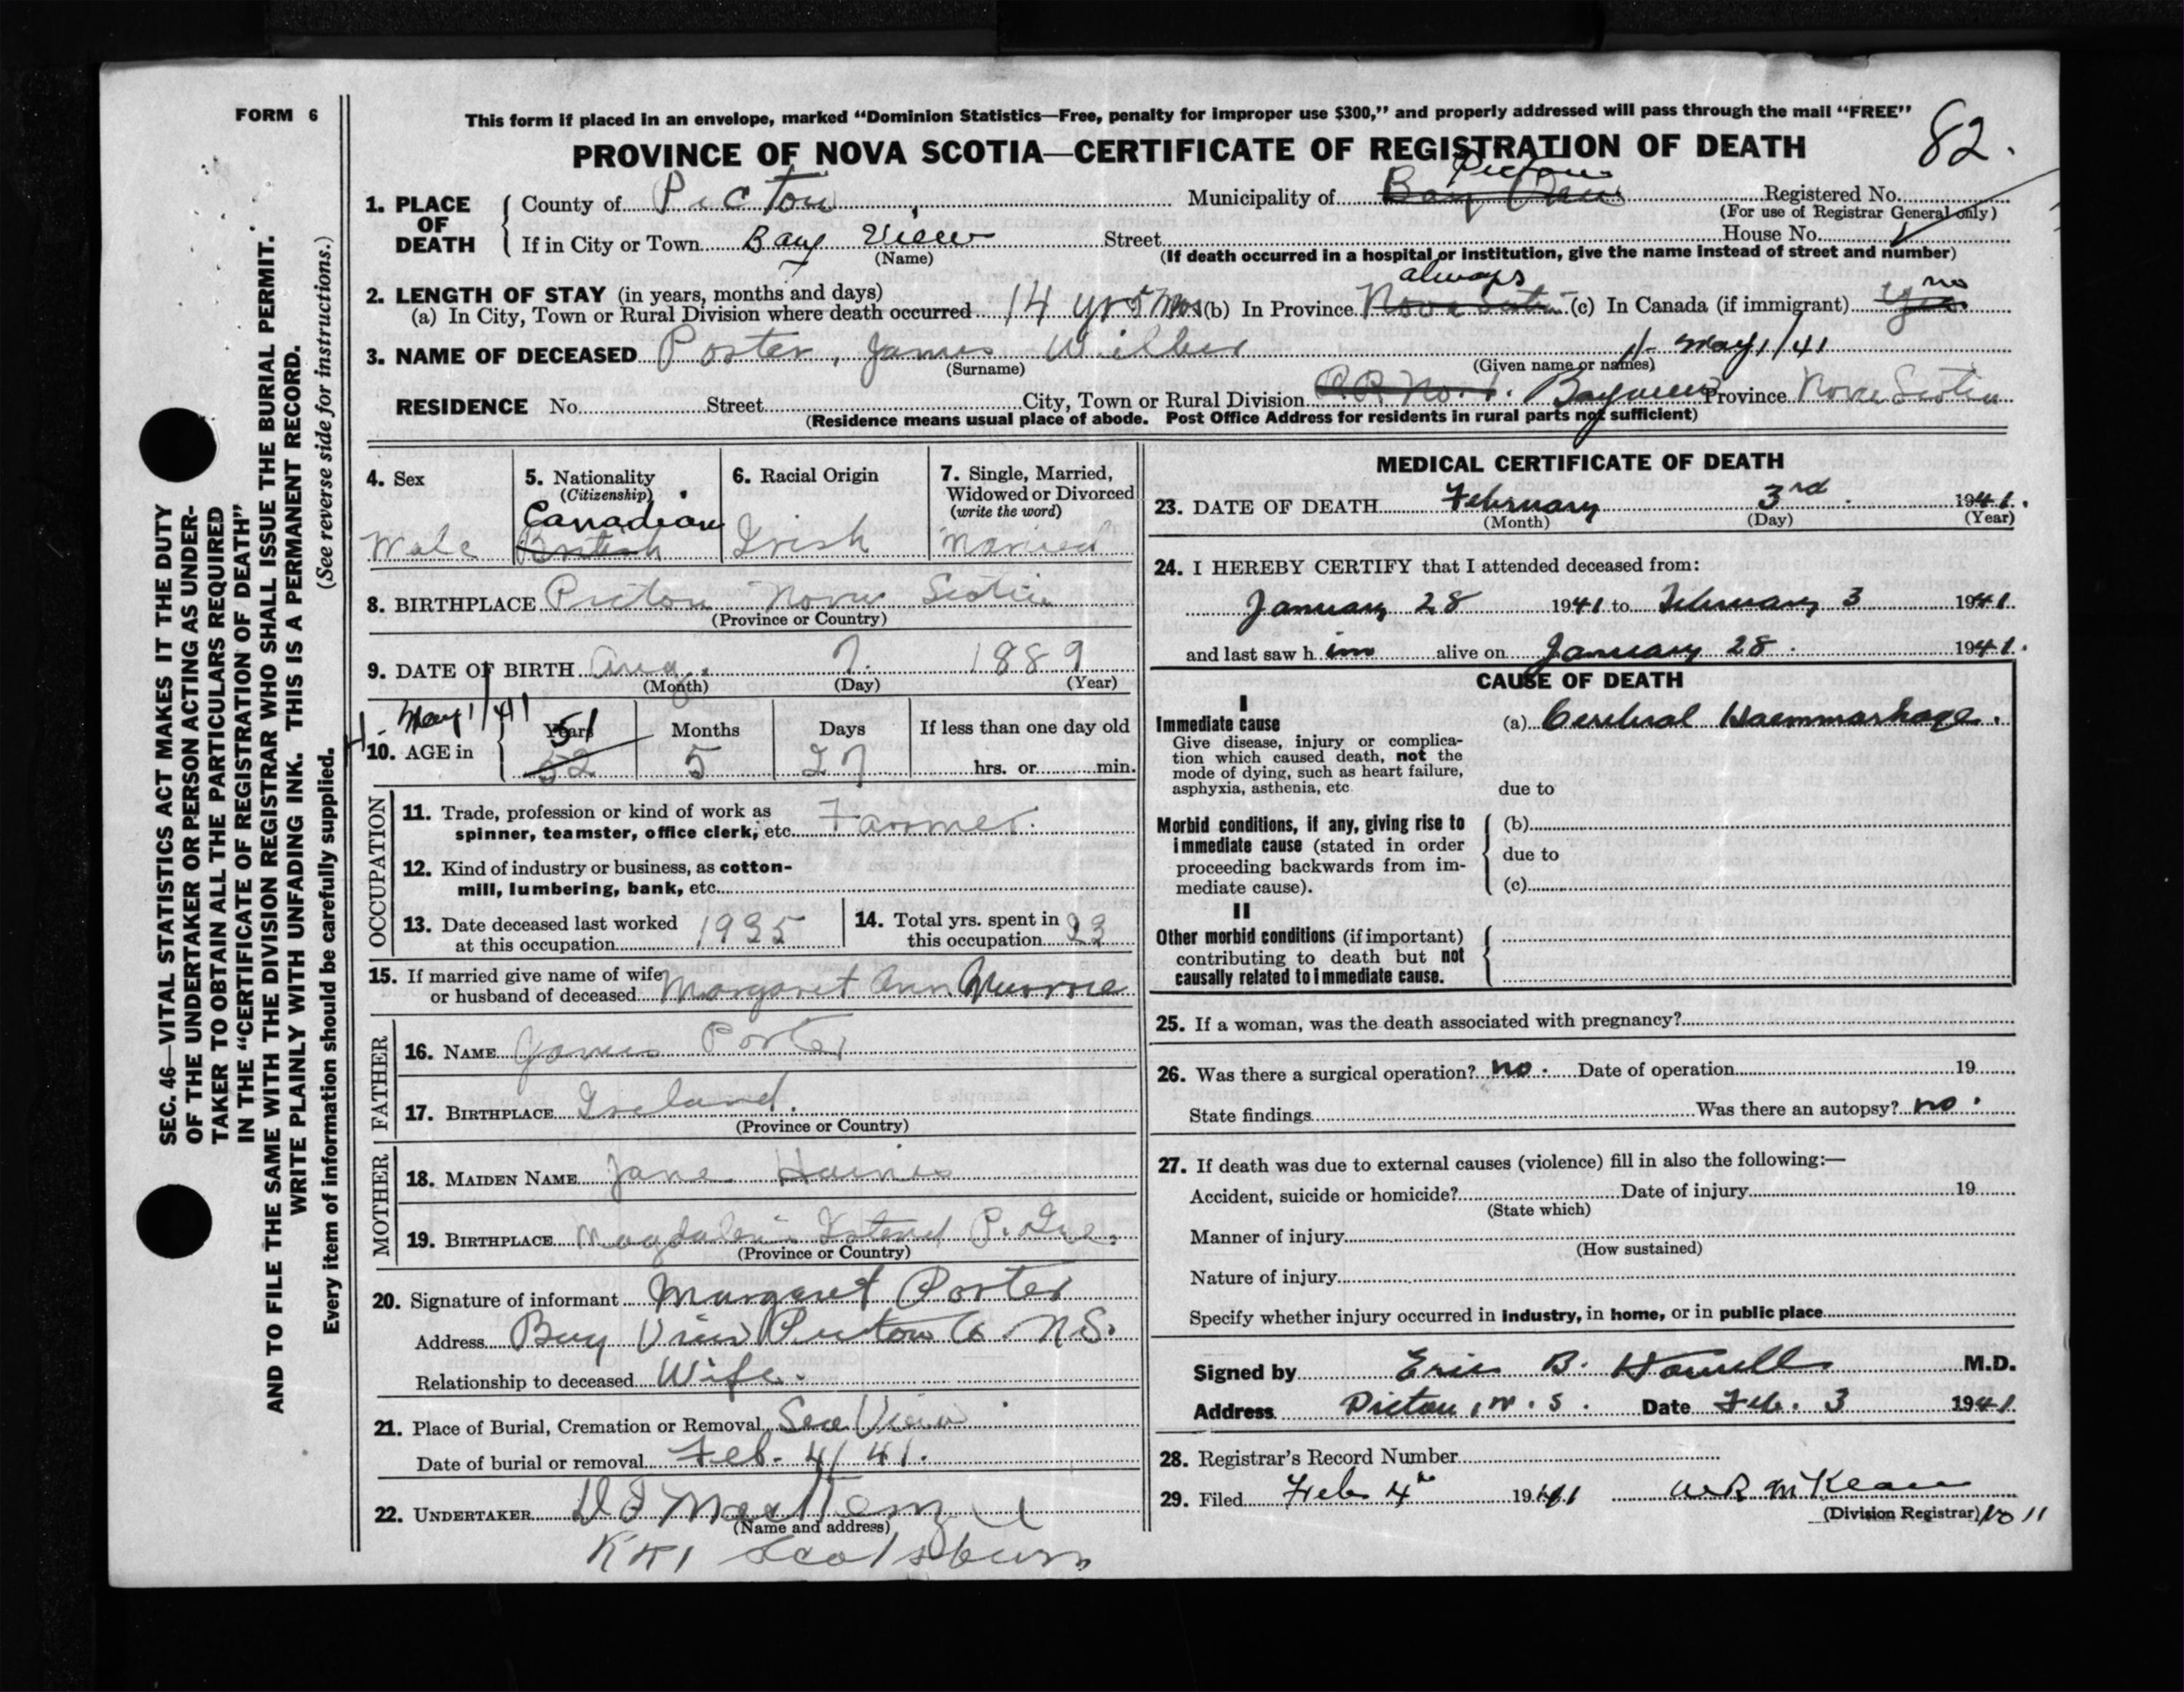 FORM 6
This form if placed in an envelope, marked “Dominion Statistics—Free, penalty for improper use $300,” and properly addressed will pass through the mail “FREE”
PROVINCE OF NOVA SCOTIA—CERTIFICATE OF REGISTRATION OF DEATH
82.
1. PLACE OF DEATH
County of Pictou
Municipality of Bay View Pictou
Registered No.
(For use of Registrar General only)
If in City or Town Bay View
(Name)
Street
House No.
(If death occurred in a hospital or institution, give the name instead of street and number)
2. LENGTH OF STAY (in years, months and days)
(a) In City, Town or Rural Division where death occurred 14 yrs 5 mos (b) In Province Nova Scotia always (c) In Canada (if immigrant) yes no
3. NAME OF DECEASED Porter, James Wilber
(Surname)
(Given name or names)
May 1/41
RESIDENCE No. Street City, Town or Rural Division R.R. No. 1. Bayview Province Nova Scotia
(Residence means usual place of abode. Post Office Address for residents in rural parts not sufficient)
4. Sex
Male
5. Nationality
(Citizenship)
Canadian
British
6. Racial Origin
Irish
7. Single, Married,
Widowed or Divorced
(write the word)
Married
8. BIRTHPLACE Pictou Nova Scotia
(Province or Country)
9. DATE OF BIRTH Aug. 7. 1889
(Month) (Day) (Year)
May 1/41
10. AGE in
Years
51
52
Months
5
Days
27
If less than one day old
hrs. or min.
OCCUPATION
11. Trade, profession or kind of work as
spinner, teamster, office clerk, etc. Farmer.
12. Kind of industry or business, as cotton-
mill, lumbering, bank, etc.
13. Date deceased last worked
at this occupation 1935
14. Total yrs. spent in
this occupation 23
15. If married give name of wife
or husband of deceased Margaret Ann
FATHER
16. NAME James Porter
17. BIRTHPLACE Ireland.
(Province or Country)
MOTHER
18. MAIDEN NAME Jane Haines
19. BIRTHPLACE Magdalen Island
(Province or Country)
20. Signature of informant Margaret Porter
Address Bay View Pictou Co. N.S.
Relationship to deceased Wife.
21. Place of Burial, Cremation or Removal Sea View
Date of burial or removal Feb. 4/41.
22. UNDERTAKER
(Name and address)
Scotsburn
MEDICAL CERTIFICATE OF DEATH
23. DATE OF DEATH February 3rd 1941.
(Month) (Day) (Year)
24. I HEREBY CERTIFY that I attended deceased from:
January 28 1941 to February 3 1941.
and last saw h im alive on January 28. 1941.
CAUSE OF DEATH
I
Immediate cause
Give disease, injury or complica-
tion which caused death, not the
mode of dying, such as heart failure,
asphyxia, asthenia, etc
(a) Cerebral Haemmarhage.
due to
Morbid conditions, if any, giving rise to
immediate cause (stated in order
proceeding backwards from im-
mediate cause).
(b)
due to
(c)
II
Other morbid conditions (if important)
contributing to death but not
causally related to immediate cause.
25. If a woman, was the death associated with pregnancy?
26. Was there a surgical operation? no. Date of operation 19
State findings Was there an autopsy? no.
27. If death was due to external causes (violence) fill in also the following:—
Accident, suicide or homicide? Date of injury 19
(State which)
Manner of injury
(How sustained)
Nature of injury
Specify whether injury occurred in industry, in home, or in public place
Signed by Eric B. Howell M.D.
Address Pictou, N.S. Date Feb. 3 1941.
28. Registrar’s Record Number
29. Filed Feb 4th 1941 McKean
(Division Registrar) No 11
SEC. 46—VITAL STATISTICS ACT MAKES IT THE DUTY
OF THE UNDERTAKER OR PERSON ACTING AS UNDER-
TAKER TO OBTAIN ALL THE PARTICULARS REQUIRED
IN THE “CERTIFICATE OF REGISTRATION OF DEATH”
AND TO FILE THE SAME WITH THE DIVISION REGISTRAR WHO SHALL ISSUE THE BURIAL PERMIT.
WRITE PLAINLY WITH UNFADING INK. THIS IS A PERMANENT RECORD.
(See reverse side for instructions.)
Every item of information should be carefully supplied.